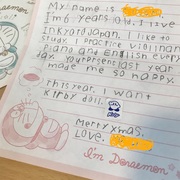 My name is
I'm 6 years old. I live
in Kyard Japan. I like to
study. I practice violin and
Piano and English every
day. Your present last year
made me so happy.
This year, I want
Kirby doll.
Merry Xmas.
Love.
I'm Doraemon
Doraemon